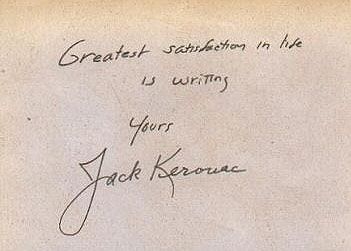 Greatest satisfaction in life
is writing
Yours
Jack Kerouac